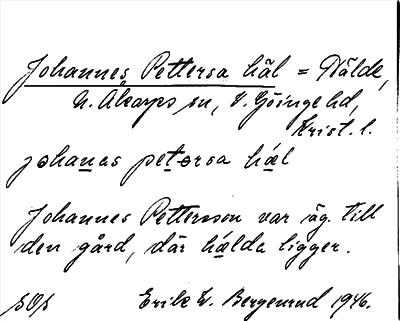 Johannes Pettersa häl = Dälde,
N. Åkarps sn, V. Göinge hd,
Krist. l.
johanas petərsa hæl
Johannes Pettersson var äg. till
den gård, där hælda ligger.
Erik W. Bergenrud 1946.